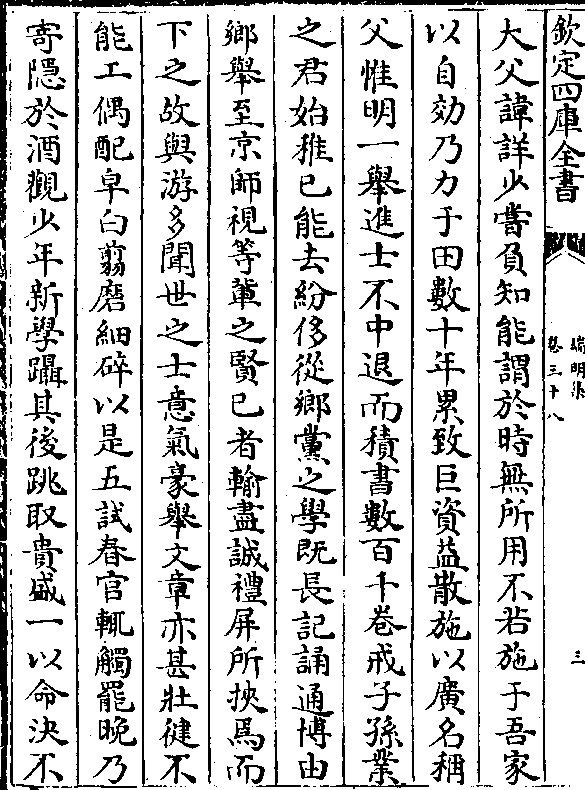 欽定四庫全書
端明集
卷三十八
三
大父諱詳少嘗負知能謂於時無所用不若施于吾家
以自効乃力于田數十年累致巨資益散施以廣名稱
父惟明一舉進士不中退而積書數百千卷戒子孫業
之君始稚已能去紛侈從鄉黨之學既長記誦通博由
鄉舉至京師視等軰之賢已者輸盡誠禮屏所挾爲而
下之故與游多聞世之士意氣豪舉文章亦甚壯健不
能工偶配皁白翦磨細碎以是五試春官輒觸罷晩乃
寄隱於酒觀少年新學躡其後跳取貴盛一以命決不